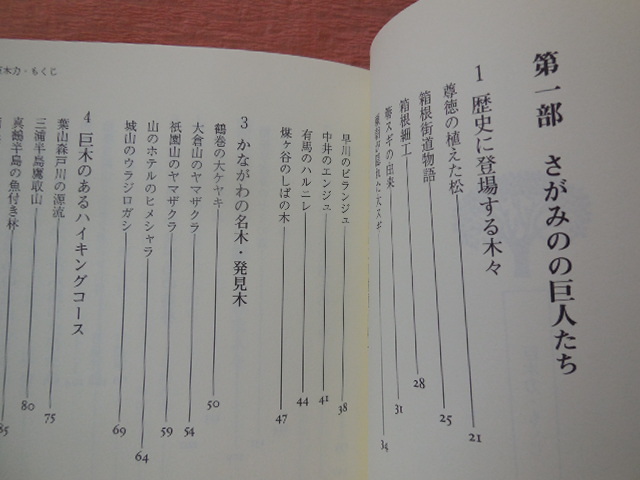 第一部 さがみのの巨人たち
1 歴史に登場する木々
尊徳の植えた松 21
箱根街道物語 25
箱根細工 28
箒スギの由来 31
大スギ 34
早川のビランジュ 38
中井のエンジュ 41
有馬のハルニレ 44
煤ヶ谷のしばの木 47
3 かながわの名木・発見木
鶴巻の大ケヤキ 50
大倉山のヤマザクラ 54
祇園山のヤマザクラ 59
山のホテルのヒメシャラ 64
城山のウラジロガシ 69
4 巨木のあるハイキングコース
葉山森戸川の源流 75
三浦半島鷹取山 80
真鶴半島の魚付き林 85
木力・もくじ